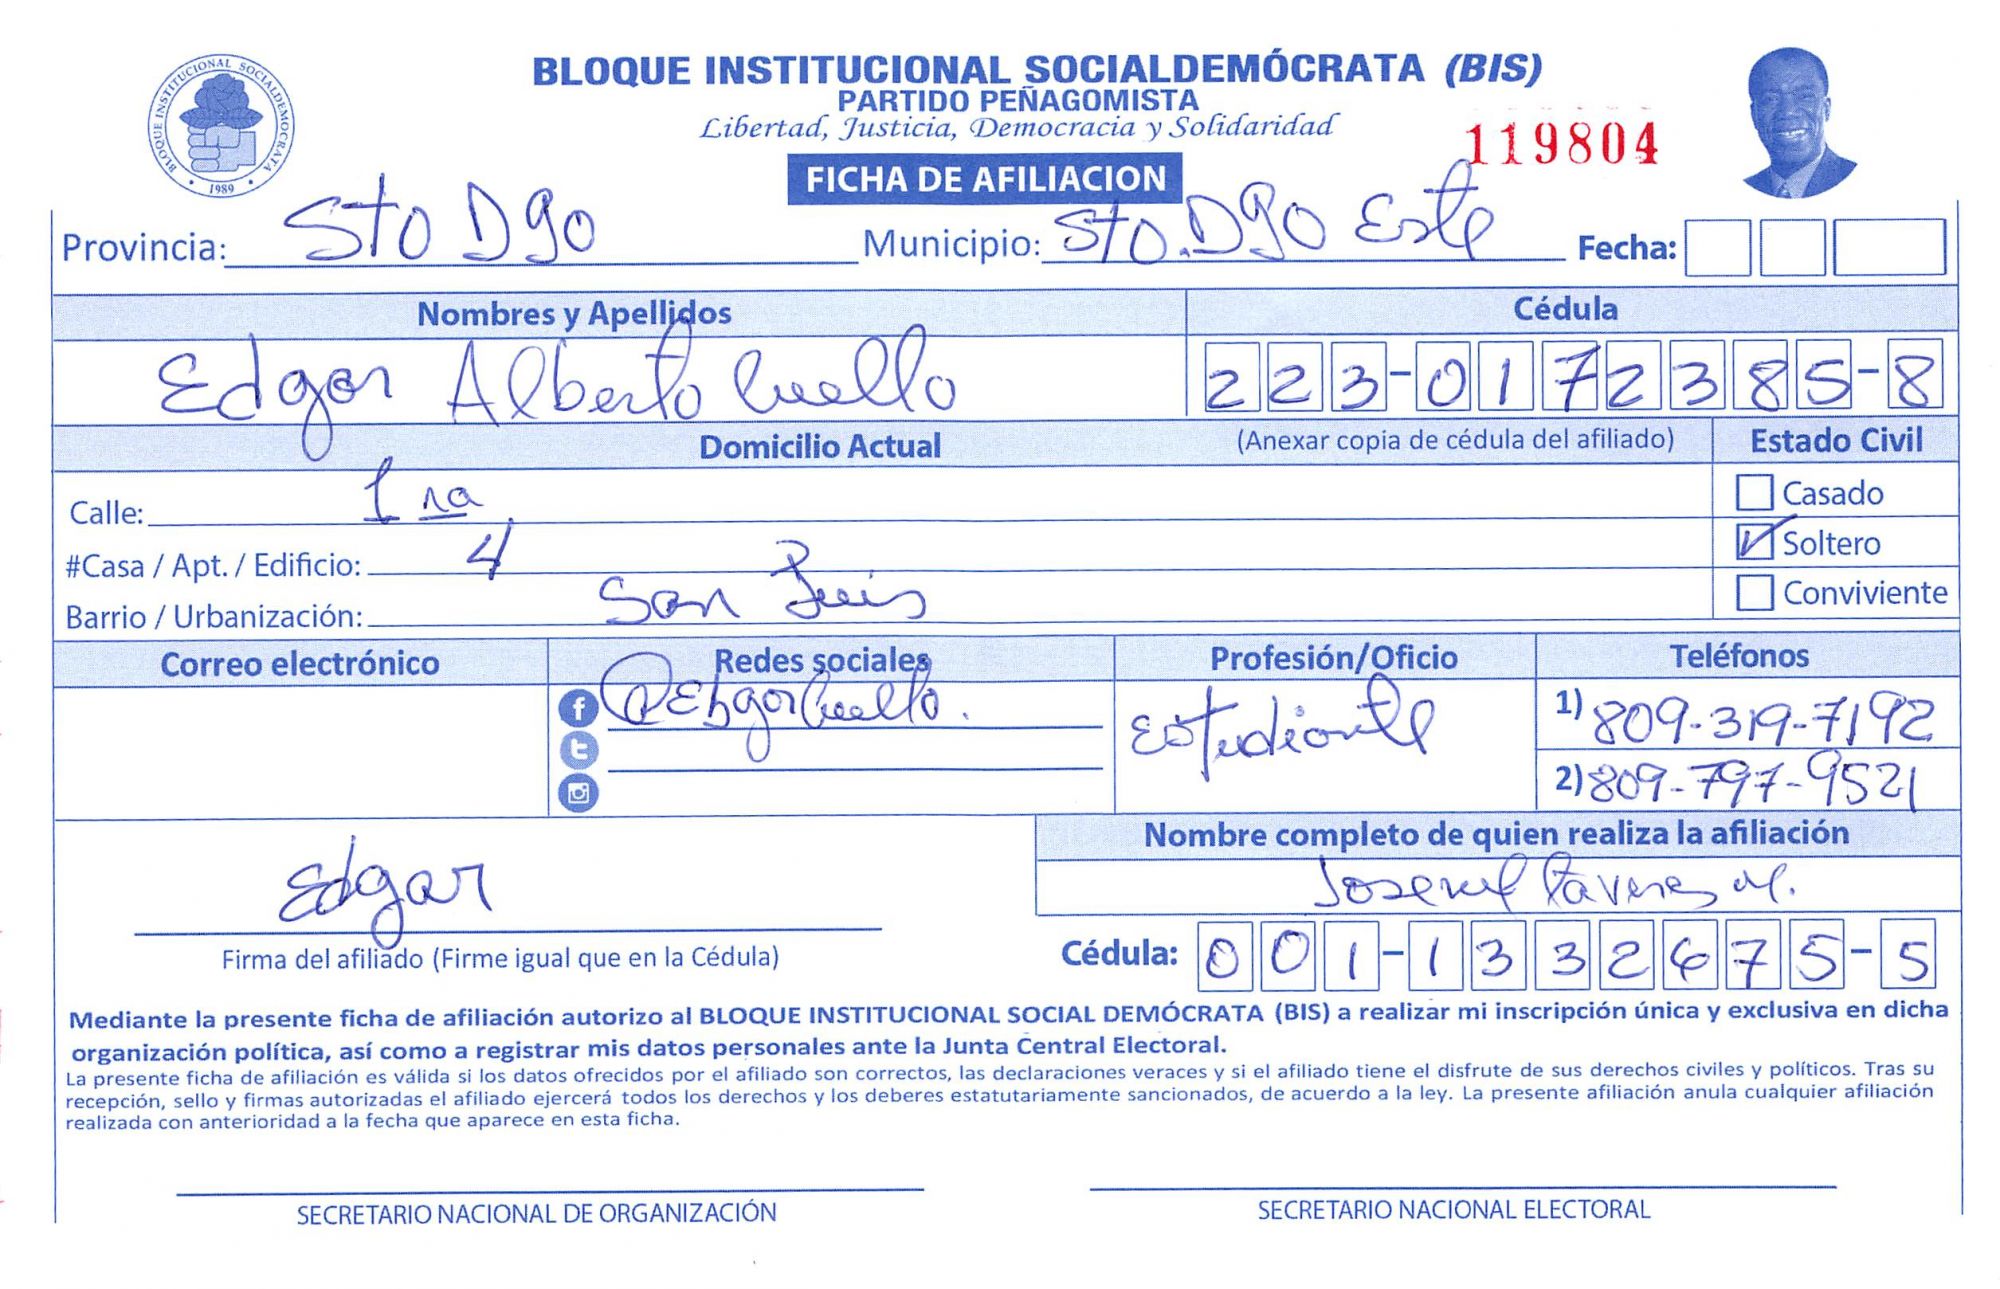 BLOQUE INSTITUCIONAL SOCIALDEMÓCRATA (BIS)
PARTIDO PEÑAGOMISTA
Libertad, Justicia, Democracia y Solidaridad
BLOQUE INSTITUCIONAL SOCIALDEMOCRATA
1989
119804
FICHA DE AFILIACION
Provincia: Sto Dgo Municipio: Sto. Dgo Este Fecha:
Nombres y Apellidos Cédula
Edgar Alberto Cuello 223-0172385-8
Domicilio Actual (Anexar copia de cédula del afiliado) Estado Civil
Calle: 1ra Casado
#Casa / Apt. / Edificio: 4 Soltero
Barrio / Urbanización: San Luis Conviviente
Correo electrónico Redes sociales Profesión/Oficio Teléfonos
@EdgarCuello. Estudiante 1) 809-319-7192
2) 809-797-9521
Nombre completo de quien realiza la afiliación
Edgar Taveras M.
Firma del afiliado (Firme igual que en la Cédula) Cédula: 001-1332675-5
Mediante la presente ficha de afiliación autorizo al BLOQUE INSTITUCIONAL SOCIAL DEMÓCRATA (BIS) a realizar mi inscripción única y exclusiva en dicha
organización política, así como a registrar mis datos personales ante la Junta Central Electoral.
La presente ficha de afiliación es válida si los datos ofrecidos por el afiliado son correctos, las declaraciones veraces y si el afiliado tiene el disfrute de sus derechos civiles y políticos. Tras su
recepción, sello y firmas autorizadas el afiliado ejercerá todos los derechos y los deberes estatutariamente sancionados, de acuerdo a la ley. La presente afiliación anula cualquier afiliación
realizada con anterioridad a la fecha que aparece en esta ficha.
SECRETARIO NACIONAL DE ORGANIZACIÓN SECRETARIO NACIONAL ELECTORAL